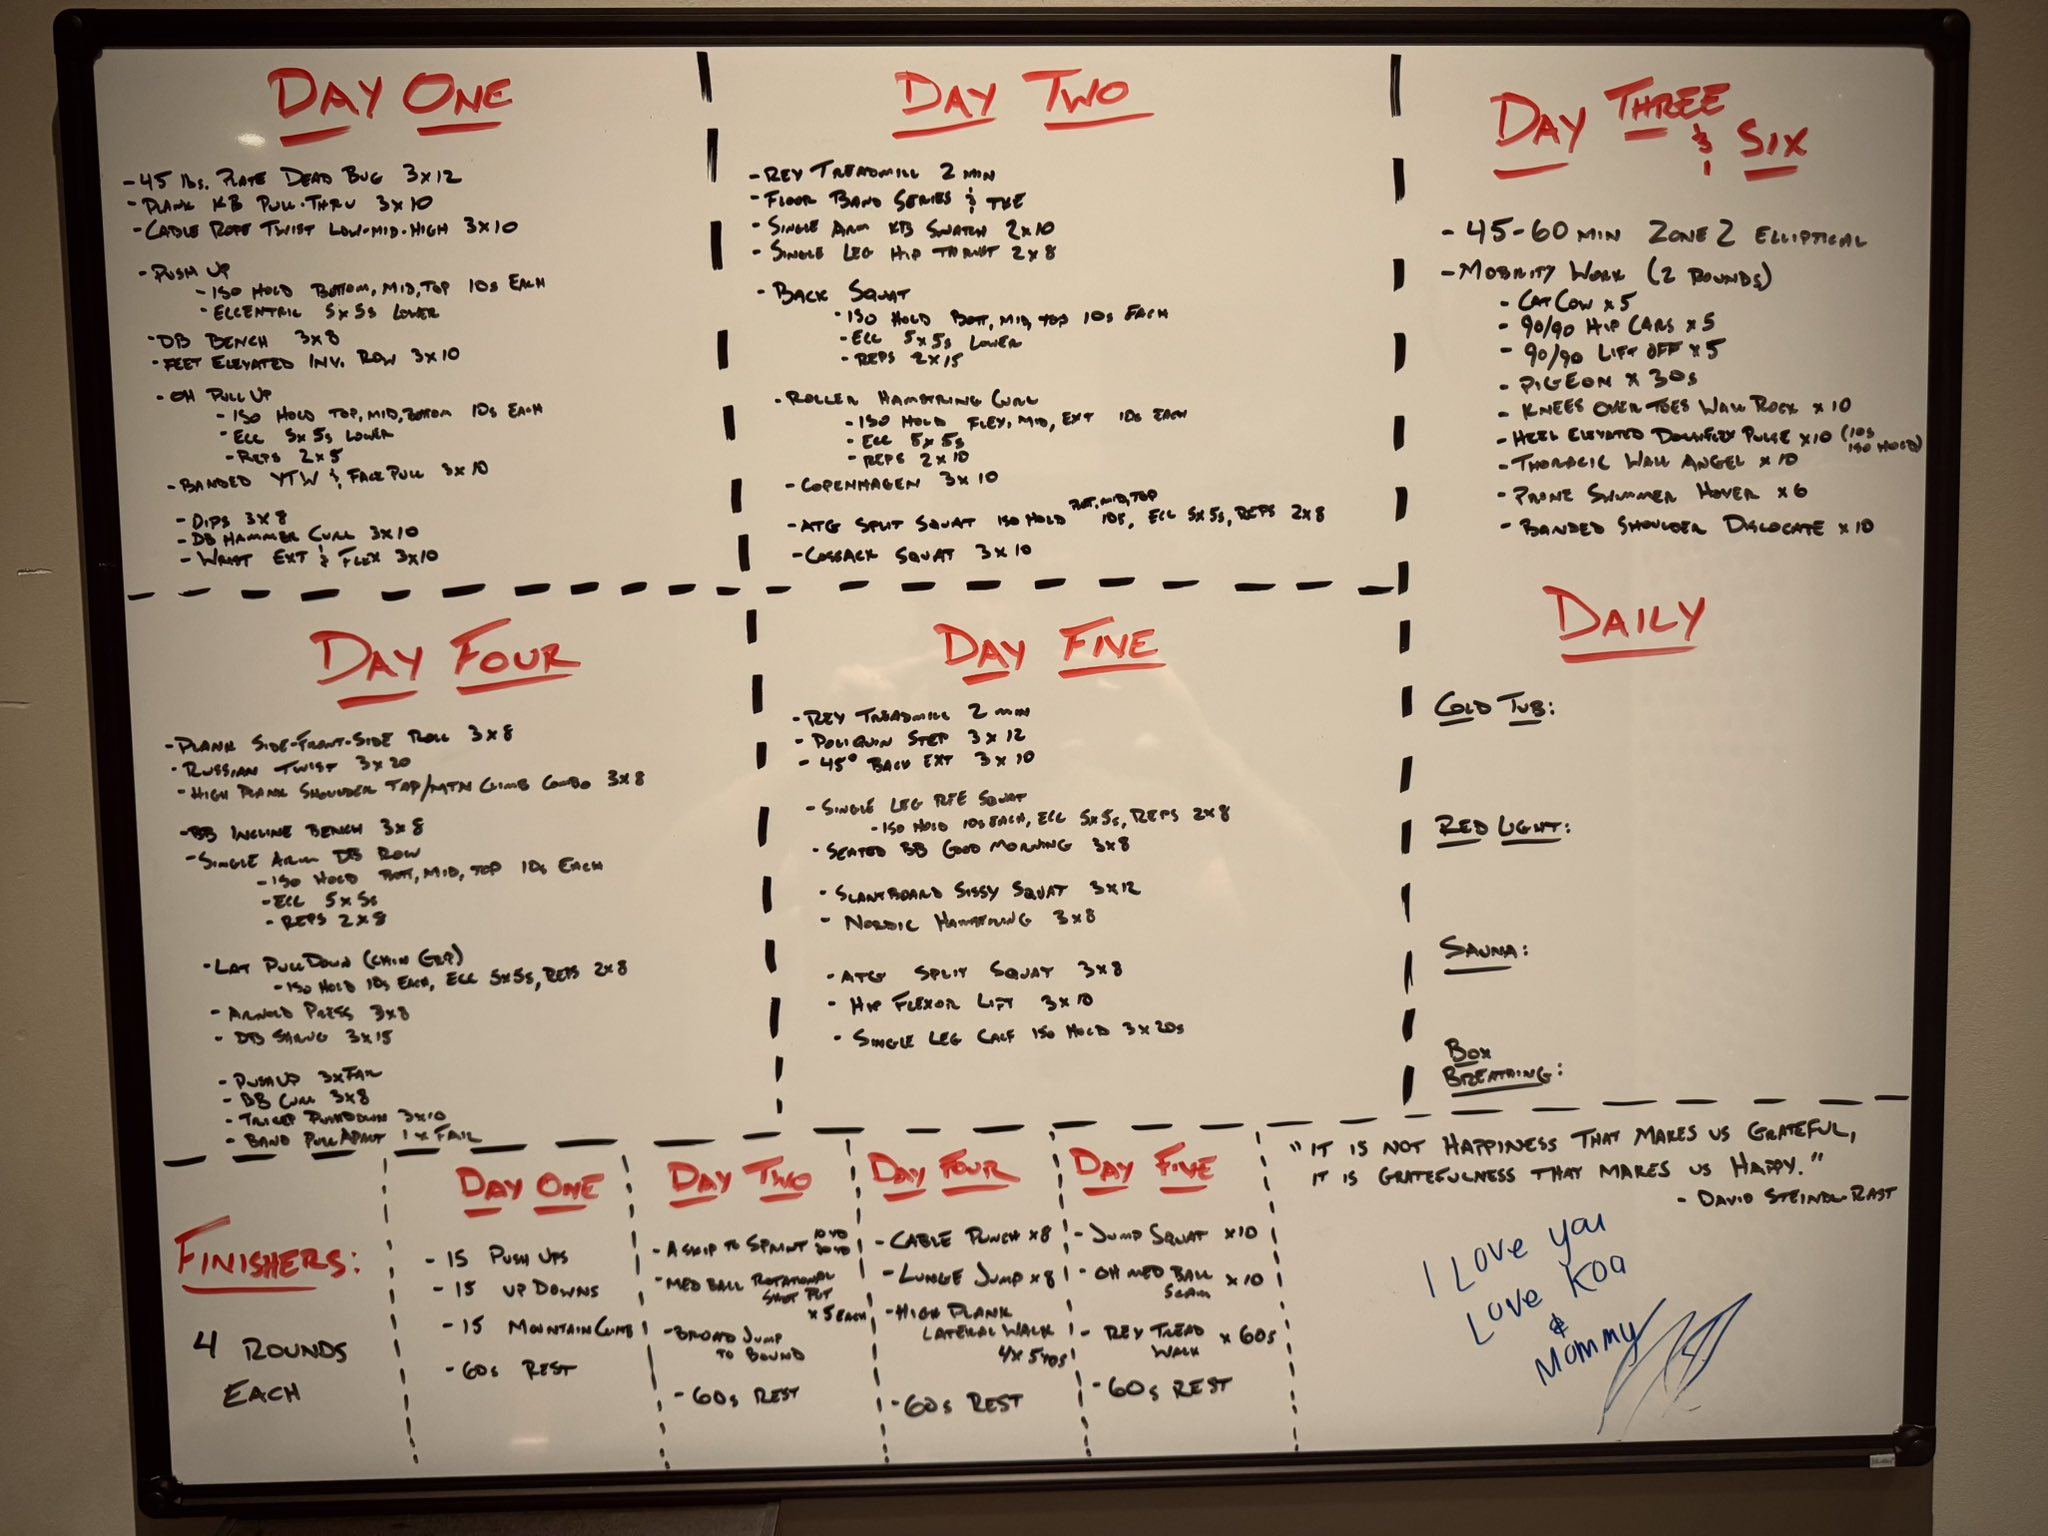 DAY ONE
- 45 lbs. PLATE DEAD BUG 3x12
- PLANK KB PULL-THRU 3x10
- CABLE ROPE TWIST LOW-MID-HIGH 3x10
- PUSH UP
- ISO HOLD BOTTOM, MID, TOP 10s EACH
- ECCENTRIC 5x5s LOWER
- DB BENCH 3x8
- FEET ELEVATED INV. ROW 3x10
- OH PULL UP
- ISO HOLD TOP, MID, BOTTOM 10s EACH
- ECC 5x5s LOWER
- REPS 2x5
- BANDED YTW & FACE PULL 3x10
- DIPS 3x8
- DB HAMMER CURL 3x10
- WRIST EXT & FLEX 3x10
DAY TWO
- REV TREADMILL 2 MIN
- FLOOR BAND SERIES & TKE
- SINGLE ARM KB SNATCH 2x10
- SINGLE LEG HIP THRUST 2x8
- BACK SQUAT
- ISO HOLD BOTT, MID, TOP 10s EACH
- ECC 5x5s LOWER
- REPS 2x15
- ROLLER HAMSTRING CURL
- ISO HOLD FLEX, MID, EXT 10s EACH
- ECC 5x5s
- REPS 2x10
- COPENHAGEN 3x10
- ATG SPLIT SQUAT ISO HOLD BOT, MID, TOP 10s, ECC 5x5s, REPS 2x8
- COSSACK SQUAT 3x10
DAY THREE & SIX
- 45-60 MIN ZONE 2 ELLIPTICAL
- MOBILITY WORK (2 ROUNDS)
- CAT COW x5
- 90/90 HIP CARS x5
- 90/90 LIFT OFF x5
- PIGEON x 30s
- KNEES OVER TOES WALL ROCK x10
- HEEL ELEVATED DORSIFLEX PULSE x10 (10s ISO HOLD)
- THORACIC WALL ANGEL x10
- PRONE SWIMMER HOVER x6
- BANDED SHOULDER DISLOCATE x10
DAY FOUR
- PLANK SIDE-FRONT-SIDE ROLL 3x8
- RUSSIAN TWIST 3x20
- HIGH PLANK SHOULDER TAP/MTN CLIMB COMBO 3x8
- BB INCLINE BENCH 3x8
- SINGLE ARM DB ROW
- ISO HOLD BOTT, MID, TOP 10s EACH
- ECC 5x5s
- REPS 2x8
- LAT PULLDOWN (CHIN GRIP)
- ISO HOLD 10s EACH, ECC 5x5s, REPS 2x8
- ARNOLD PRESS 3x8
- DB SHRUG 3x15
- PUSH UP 3xFAIL
- BB CURL 3x8
- TRICEP PUSHDOWN 3x10
- BAND PULL APART 1xFAIL
DAY FIVE
- REV TREADMILL 2 MIN
- POLIQUIN STEP 3x12
- 45° BACK EXT 3x10
- SINGLE LEG RFE SQUAT
- ISO HOLD 10s EACH, ECC 5x5s, REPS 2x8
- SEATED BB GOOD MORNING 3x8
- SLANTBOARD SISSY SQUAT 3x12
- NORDIC HAMSTRING 3x8
- ATG SPLIT SQUAT 3x8
- HIP FLEXOR LIFT 3x10
- SINGLE LEG CALF ISO HOLD 3x20s
DAILY
COLD TUB:
RED LIGHT:
SAUNA:
BOX
BREATHING:
FINISHERS:
4 ROUNDS
EACH
DAY ONE
- 15 PUSH UPS
- 15 UP DOWNS
- 15 MOUNTAIN CLIMB
- 60s REST
DAY TWO
- A SKIP TO SPRINT 10YD 20YD
- MED BALL ROTATIONAL
SHOT PUT
x5 EACH
- BROAD JUMP
TO BOUND
- 60s REST
DAY FOUR
- CABLE PUNCH x8
- LUNGE JUMP x8
- HIGH PLANK
LATERAL WALK
4x5YDS
- 60s REST
DAY FIVE
- JUMP SQUAT x10
- OH MED BALL
SLAM x10
- REV TREAD
WALK x 60s
- 60s REST
"IT IS NOT HAPPINESS THAT MAKES US GRATEFUL,
IT IS GRATEFULNESS THAT MAKES US HAPPY."
- DAVID STEINDL-RAST
I Love you
Love Koa
&
Mommy